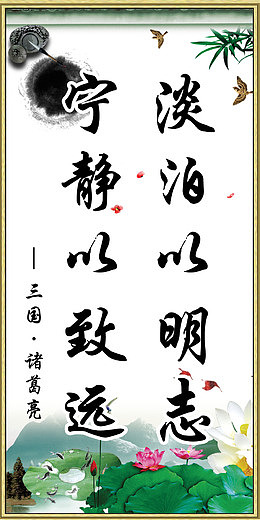 淡泊以明志
宁静以致远
— 三国·诸葛亮